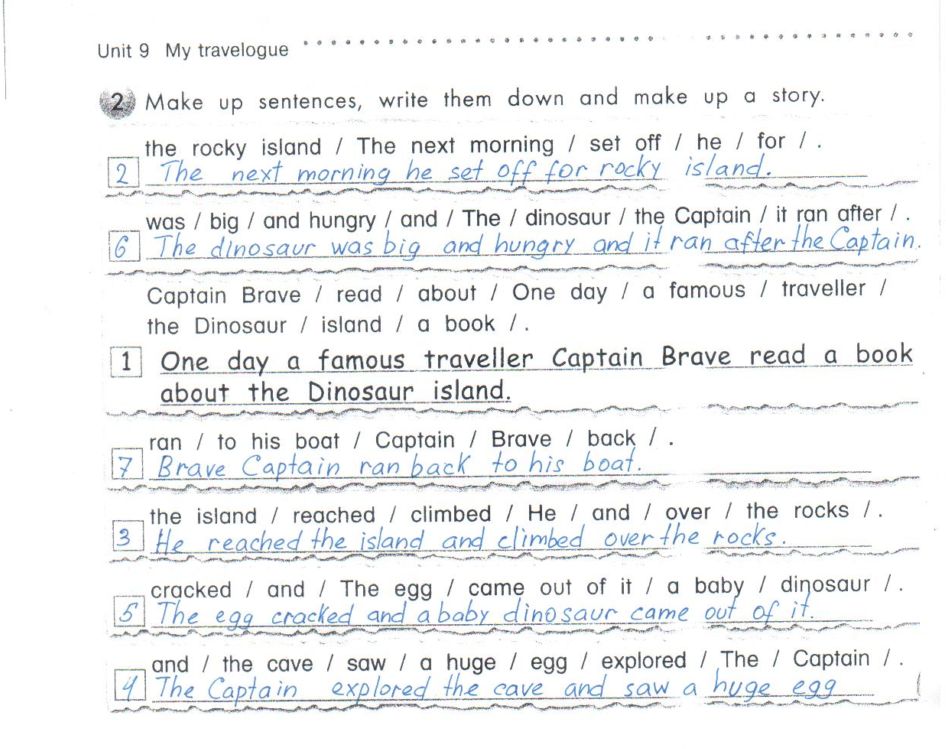 Unit 9 My travelogue
2 Make up sentences, write them down and make up a story.
the rocky island / The next morning / set off / he / for / .
2 The next morning he set off for rocky island.
was / big / and hungry / and / The / dinosaur / the Captain / it ran after / .
6 The dinosaur was big and hungry and it ran after the Captain.
Captain Brave / read / about / One day / a famous / traveller /
the Dinosaur / island / a book / .
1 One day a famous traveller Captain Brave read a book
about the Dinosaur island.
ran / to his boat / Captain / Brave / back / .
7 Brave Captain ran back to his boat.
the island / reached / climbed / He / and / over / the rocks / .
3 He reached the island and climbed over the rocks.
cracked / and / The egg / came out of it / a baby / dinosaur / .
5 The egg cracked and a baby dinosaur came out of it.
and / the cave / saw / a huge / egg / explored / The / Captain / .
4 The Captain explored the cave and saw a huge egg